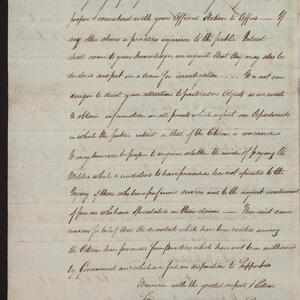 proper & consistent with your Official Station to Offer — If
any other abuse or practice injurious to the public Interest
shall come to your knowledge, we request that they may also be
made a
for investigation — We do not
design to direct your attention to particular Objects as we wish
to obtain information on all points which respect our Departments
in which the public interest or that of the Citizen is concerned
We may however be proper to enquire whether the mode of paying the
Militia which we understand to have prevailed has not operated to the
Injury of those who have performed service and to the unjust emolument
of persons who have speculated on their claims — There exist some
reasons for belief that the discontents which have been excited among
the Citizens have proceeded from practices which have not been authorised
by Government and which we feel no disposition to Support
We remain with the greatest respect & Esteem
Sir